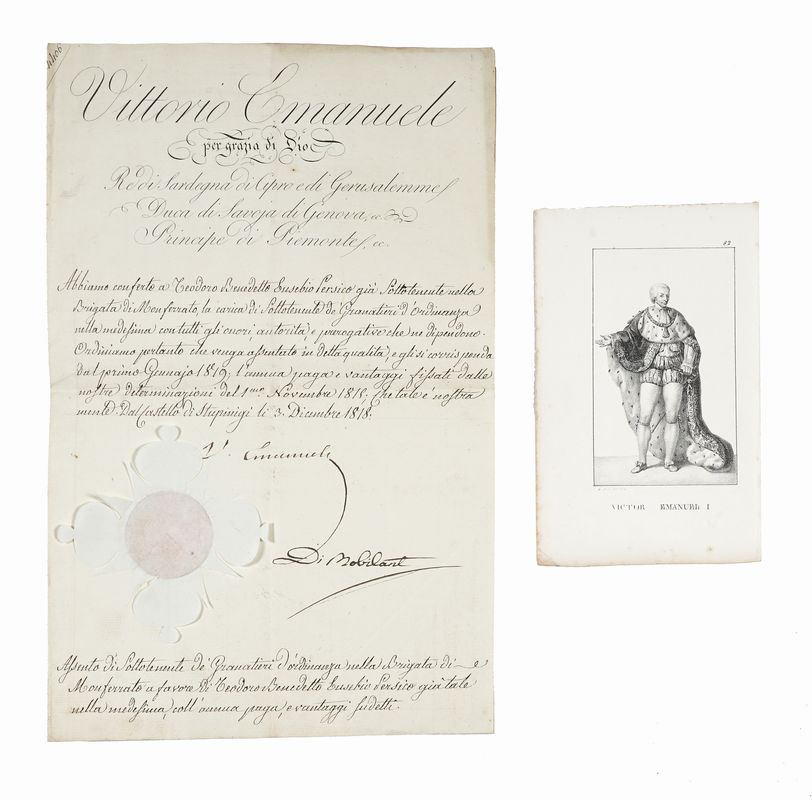 Vittorio Emanuele
per grazia di Dio
Re di Sardegna di Cipro e di Gerusalemme
Duca di Savoja di Genova, ec.
Principe di Piemonte, ec.
Abbiamo conferto a Teodoro Benedetto Eusebio Persico già Sottotenente nella
Brigata di Monferrato, la carica di Sottotenente de' Granatieri d'Ordinanza
nella medesima con tutti gli onori, autorità, e prerogative che ne dipendono.
Ordiniamo pertanto che venga assentato in detta qualità, e gli si corrisponda
dal primo Gennajo 1819; l'annua paga e vantaggi fissati dalle
nostre determinazioni del 1.mo Novembre 1818. Che tale è nostra
mente. Dal Castello di Stupinigi li 3. Dicembre 1818.
V. Emanuele
Di Mobilant
Assento di Sottotenente de' Granatieri d'ordinanza nella Brigata di
Monferrato a favore di Teodoro Benedetto Eusebio Persico già tale
nella medesima, coll'annua paga, e vantaggi sudetti.
VICTOR EMANUEL I